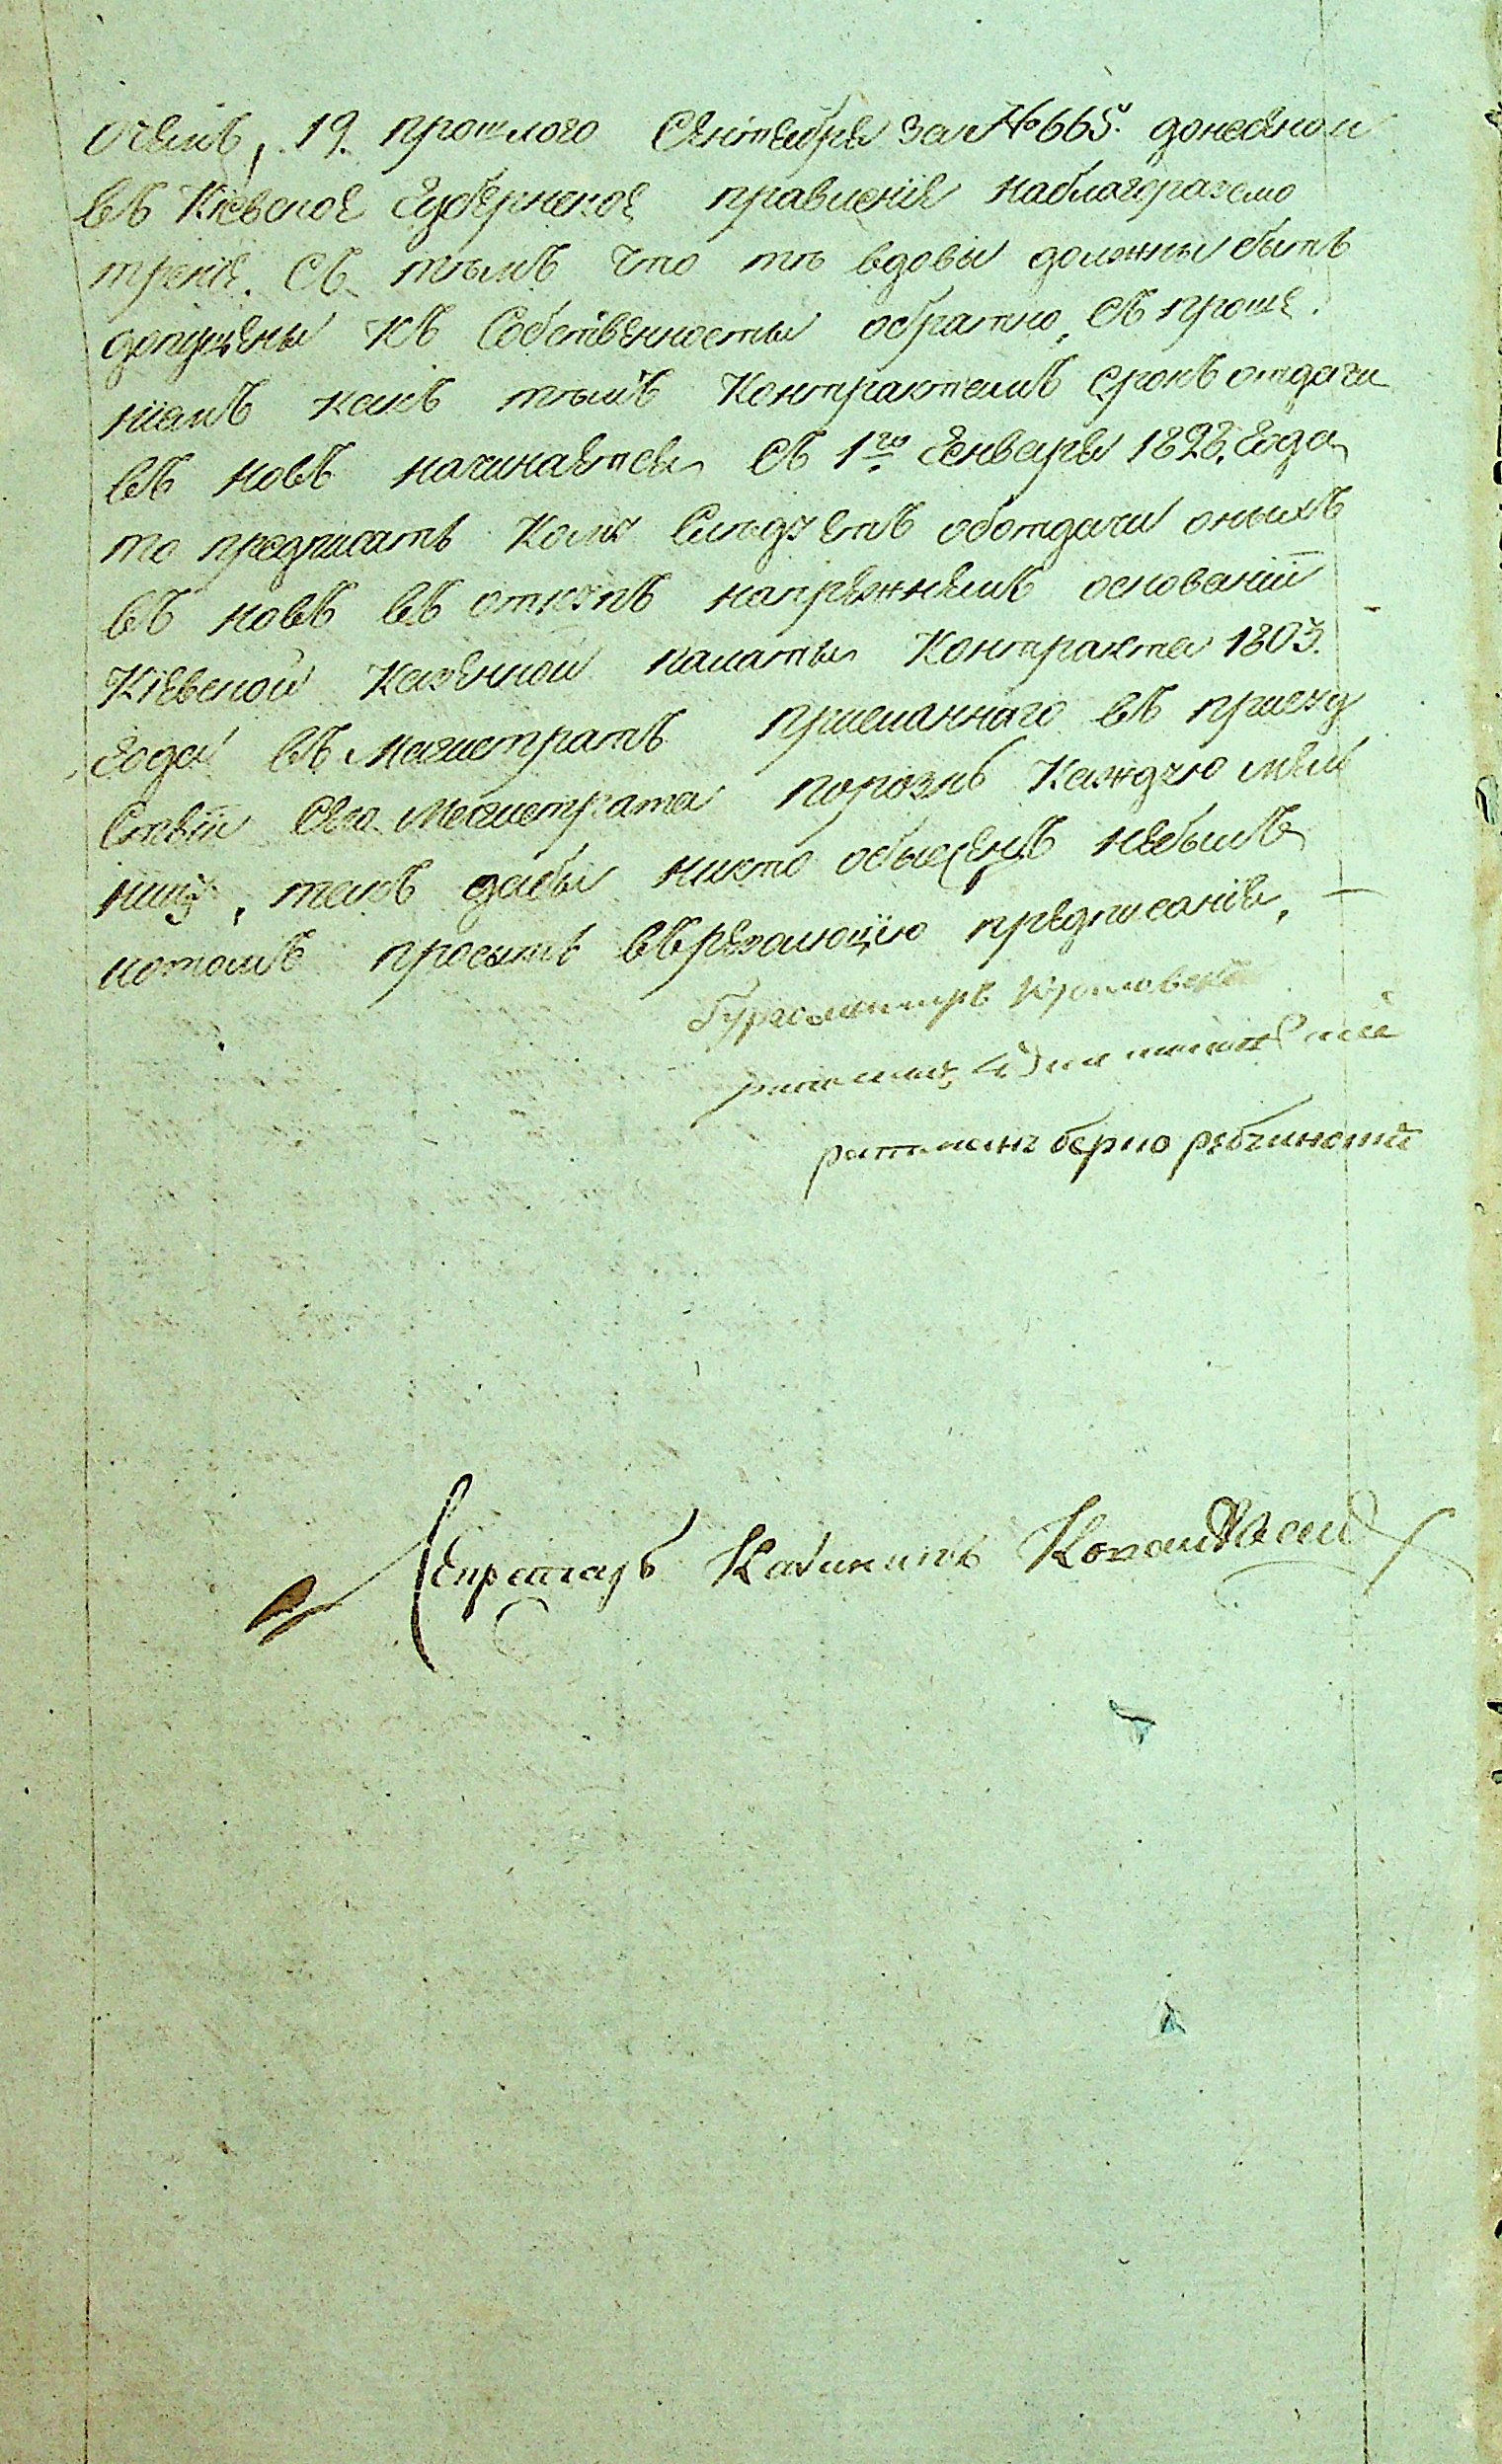 очемъ, 19. прошлого Сентября за №665. донесено и
въ Кіевское Губернское правленіе наблагоразсмо
треніе. Съ тѣмъ что тѣ вдовы должны быть
допущены къ Собственносты обратно, Съ проше.
ніемъ какъ тѣмъ Контрактамъ срокъ отдачи
въ новъ начинается Съ 1го Генваря 1828. Года
то предписать Кому Слѣдуетъ оботдачи оныхъ
въ новъ въ откупъ напрежнемъ основаніи
Кіевской Казенной палаты Контракта 1803.
Года въ Магистратъ присланнаго въ присуд
ствіи Сего Магистрата порознь Каждую мѣль
ницу, такъ дабы никто обыженъ небылъ
потомъ просить въРезолюцію предписанія. —
Бургомистръ
ратманъ
ратманъ берко рябчинский
Секретарь